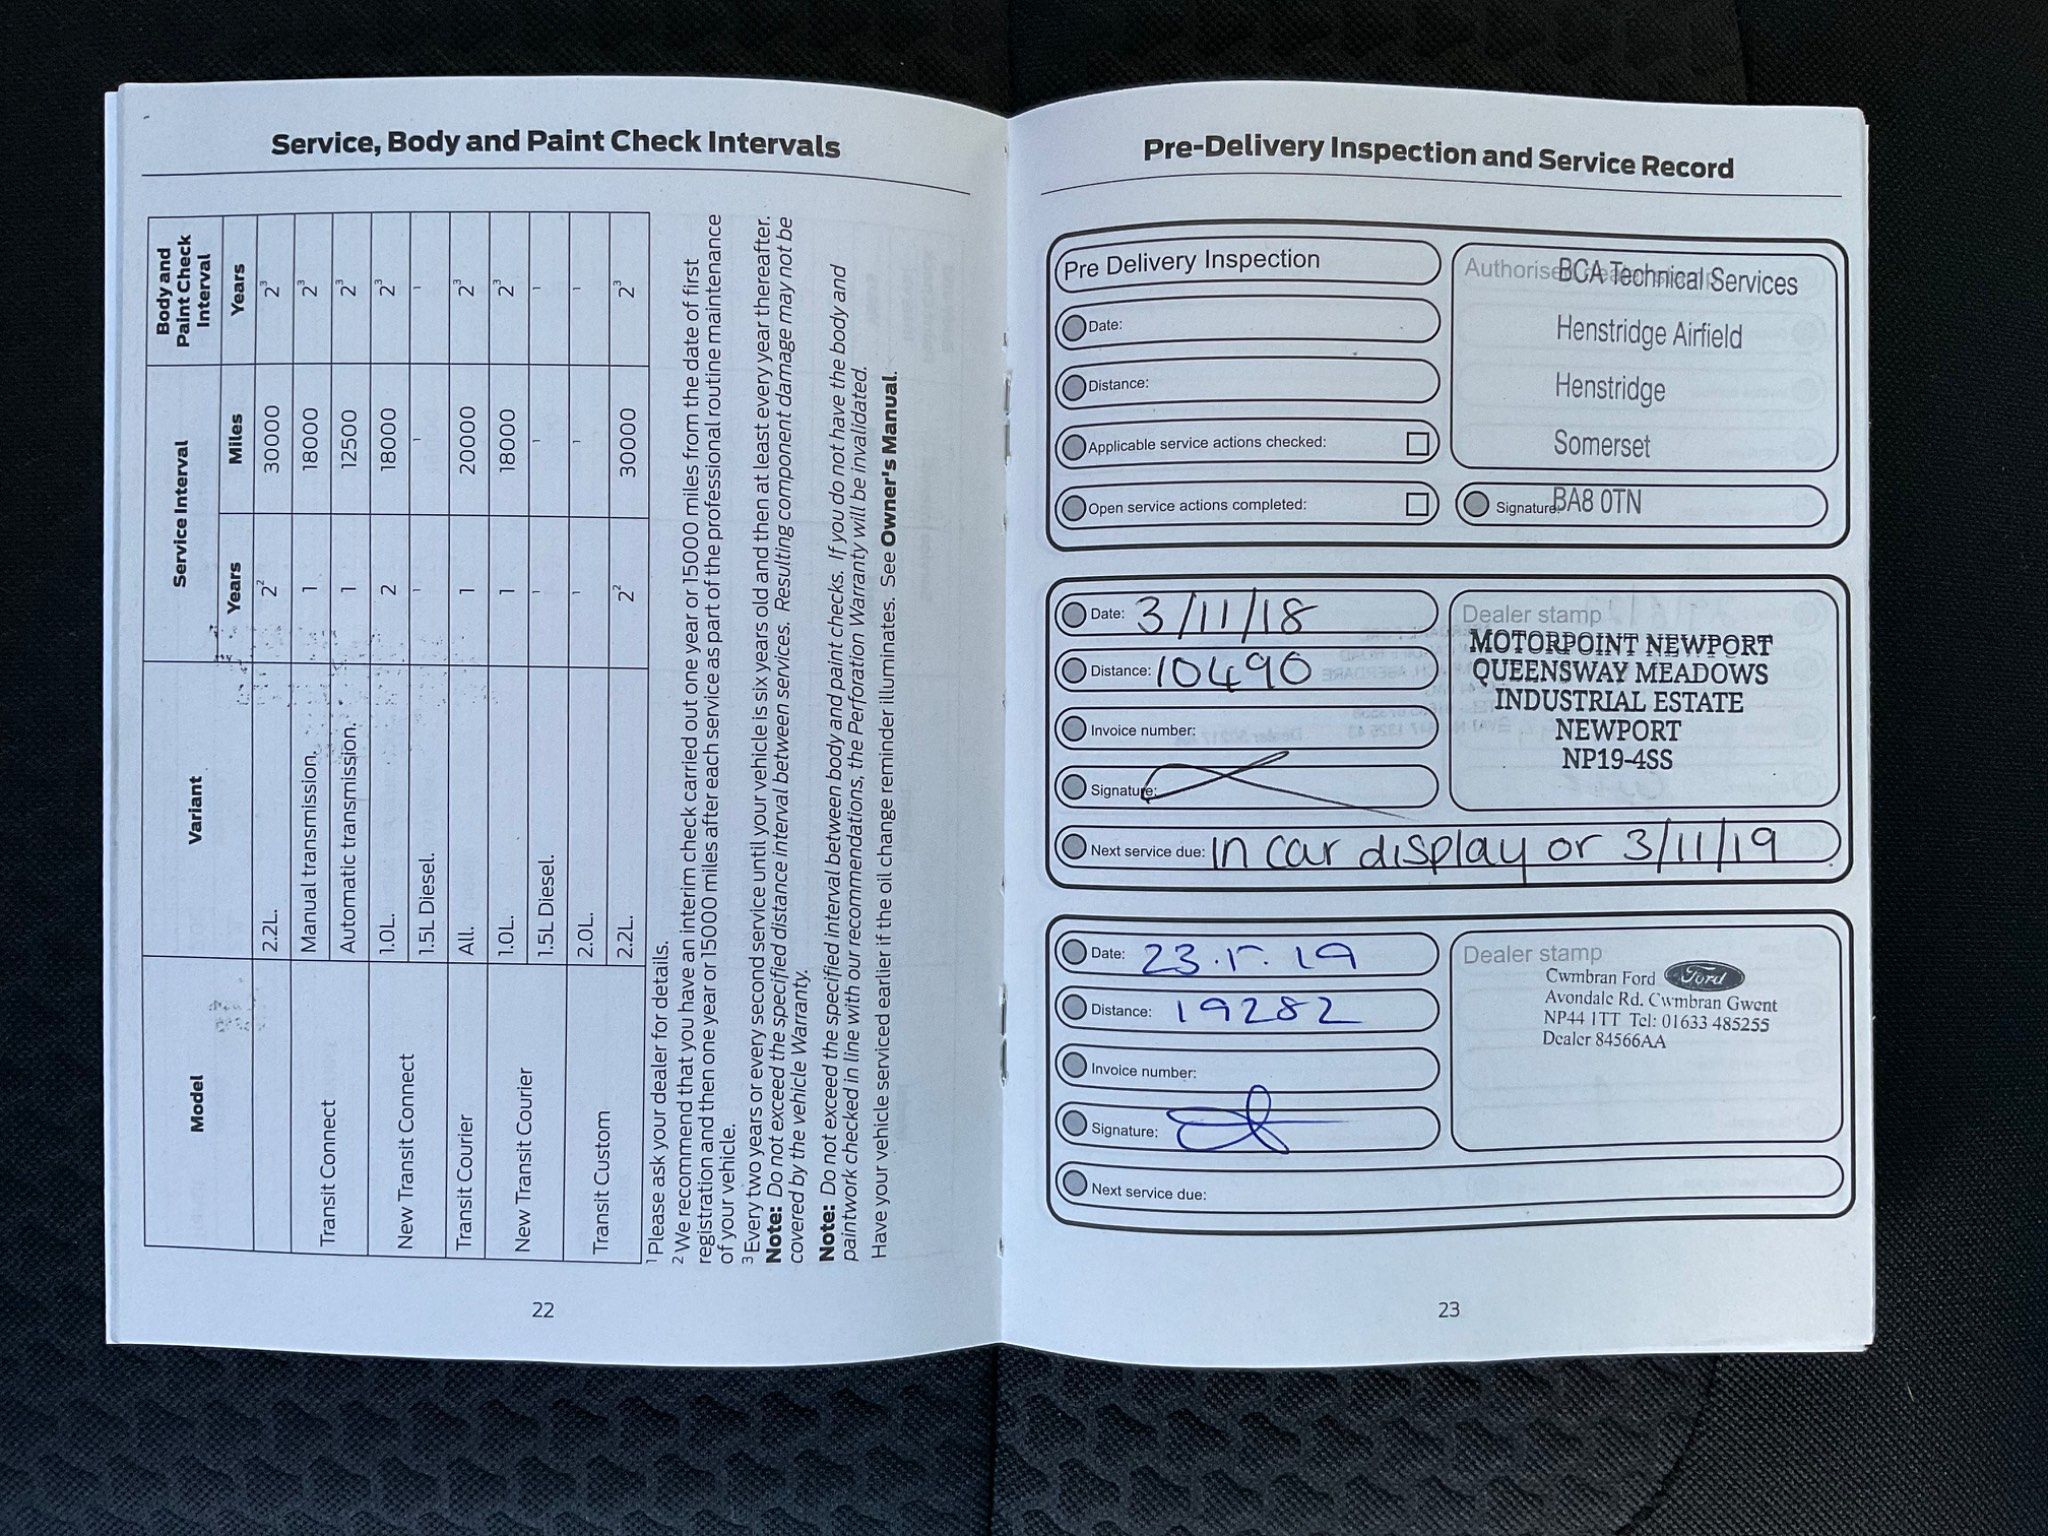 Service, Body and Paint Check Intervals
Model Variant Service Interval Body and Paint Check Interval
Years Miles Years
2.2L. 2² 30000 2³
Transit Connect Manual transmission. 1 18000 2³
Automatic transmission. 1 12500 2³
New Transit Connect 1.0L. 2 18000 2³
1.5L Diesel. 1 1 1
Transit Courier All. 1 20000 2³
New Transit Courier 1.0L. 1 18000 2³
1.5L Diesel. 1 1 1
Transit Custom 2.0L. 1 1 1
2.2L. 2² 30000 2³
1 Please ask your dealer for details.
2 We recommend that you have an interim check carried out one year or 15000 miles from the date of first
registration and then one year or 15000 miles after each service as part of the professional routine maintenance
of your vehicle.
3 Every two years or every second service until your vehicle is six years old and then at least every year thereafter.
Note: Do not exceed the specified distance interval between services. Resulting component damage may not be
covered by the vehicle Warranty.
Note: Do not exceed the specified interval between body and paint checks. If you do not have the body and
paintwork checked in line with our recommendations, the Perforation Warranty will be invalidated.
Have your vehicle serviced earlier if the oil change reminder illuminates. See Owner's Manual.
22
Pre-Delivery Inspection and Service Record
Pre Delivery Inspection
Date:
Distance:
Applicable service actions checked:
Open service actions completed:
BCA Technical Services
Henstridge Airfield
Henstridge
Somerset
Signature: BA8 0TN
Date: 3/11/18
Distance: 10490
Invoice number:
Signature:
Dealer stamp
MOTORPOINT NEWPORT
QUEENSWAY MEADOWS
INDUSTRIAL ESTATE
NEWPORT
NP19-4SS
Next service due: In car display or 3/11/19
Date:
Distance: 19282
Invoice number:
Signature:
Dealer stamp
Cwmbran Ford Ford
Avondale Rd. Cwmbran Gwent
NP44 1TT Tel: 01633 485255
Dealer 84566AA
Next service due:
23